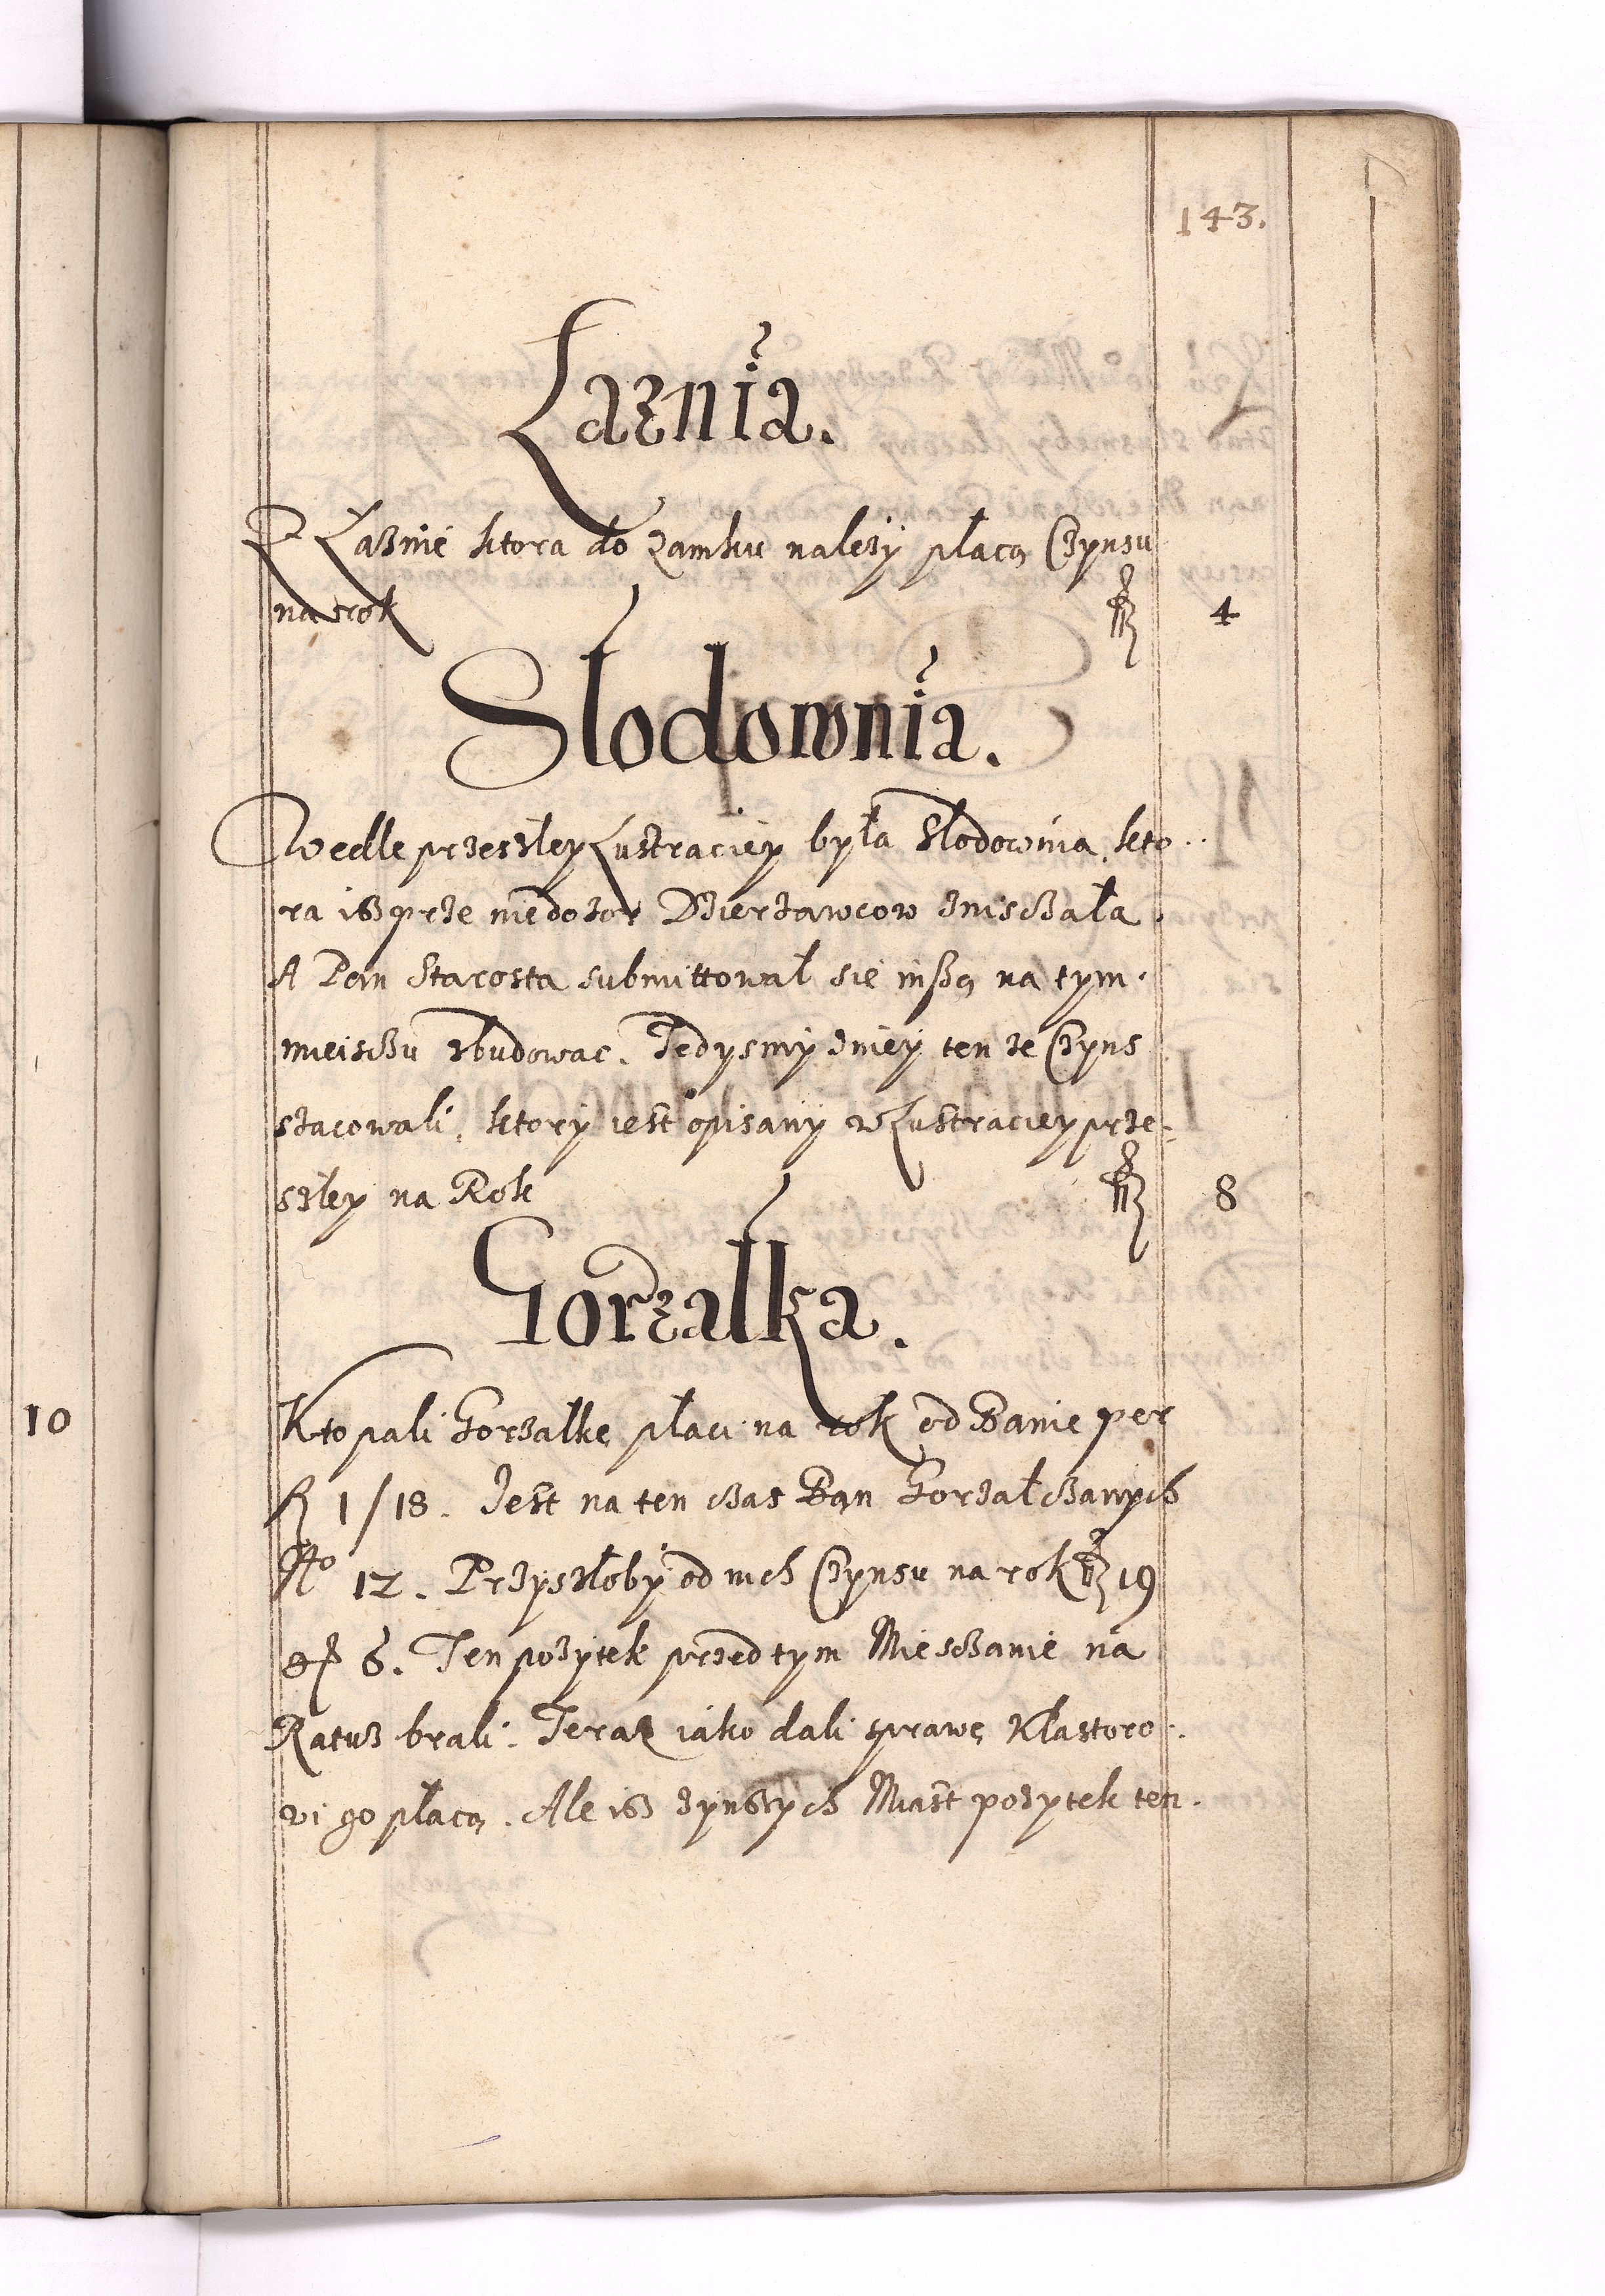 143.
Łaznia.
Z Łaznie ktora do zamku nalezy płacą Czynsu
na rok fl 4
Słodownia.
Wedle przeszłey Lustraciey była Słodownia, kto
ra isz prze niedozor Dzierzawcow znisczała.
A Pan Starosta submittował sie inszą na tym
mieisczu zbudowac. Tedysmy zniey ten ze Czyns
szacowali, ktory iest opisany w Lustraciey prze-
szłey na Rok fl 8
Gorzałka.
Kto pali Gorzałkę płaci na rok od Banie per
fl 1/18. Jest na ten czas Bań Gorzałczanych
No 12. Przyszłoby od nich Czynsu na rok fl 19
gr 6. Ten pozytek przedtym Miesczanie na
Ratusz brali. Teraz iako dali sprawę Klastoro-
wi go płacą. Ale isz z ynszych Miast pozytek ten
10